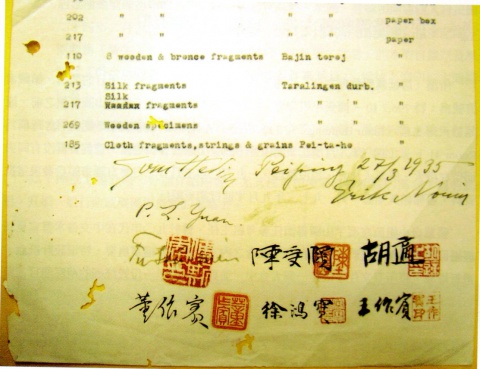 202 " " " " paper box
217 " " " " paper
110 6 wooden & bronce fragments Hajin toroj "
213 Silk fragments Tsralingen durb. "
Silk
217 fragments " " "
269 Wooden specimens " " "
185 Cloth fragments,strings & grains Pei-ta-ho "
Sven Hedin Peiping 27/3 1935
Erik Norin
P. L. Yuan.
陳受頤 胡適
董作賓 徐鴻寶 王作賓